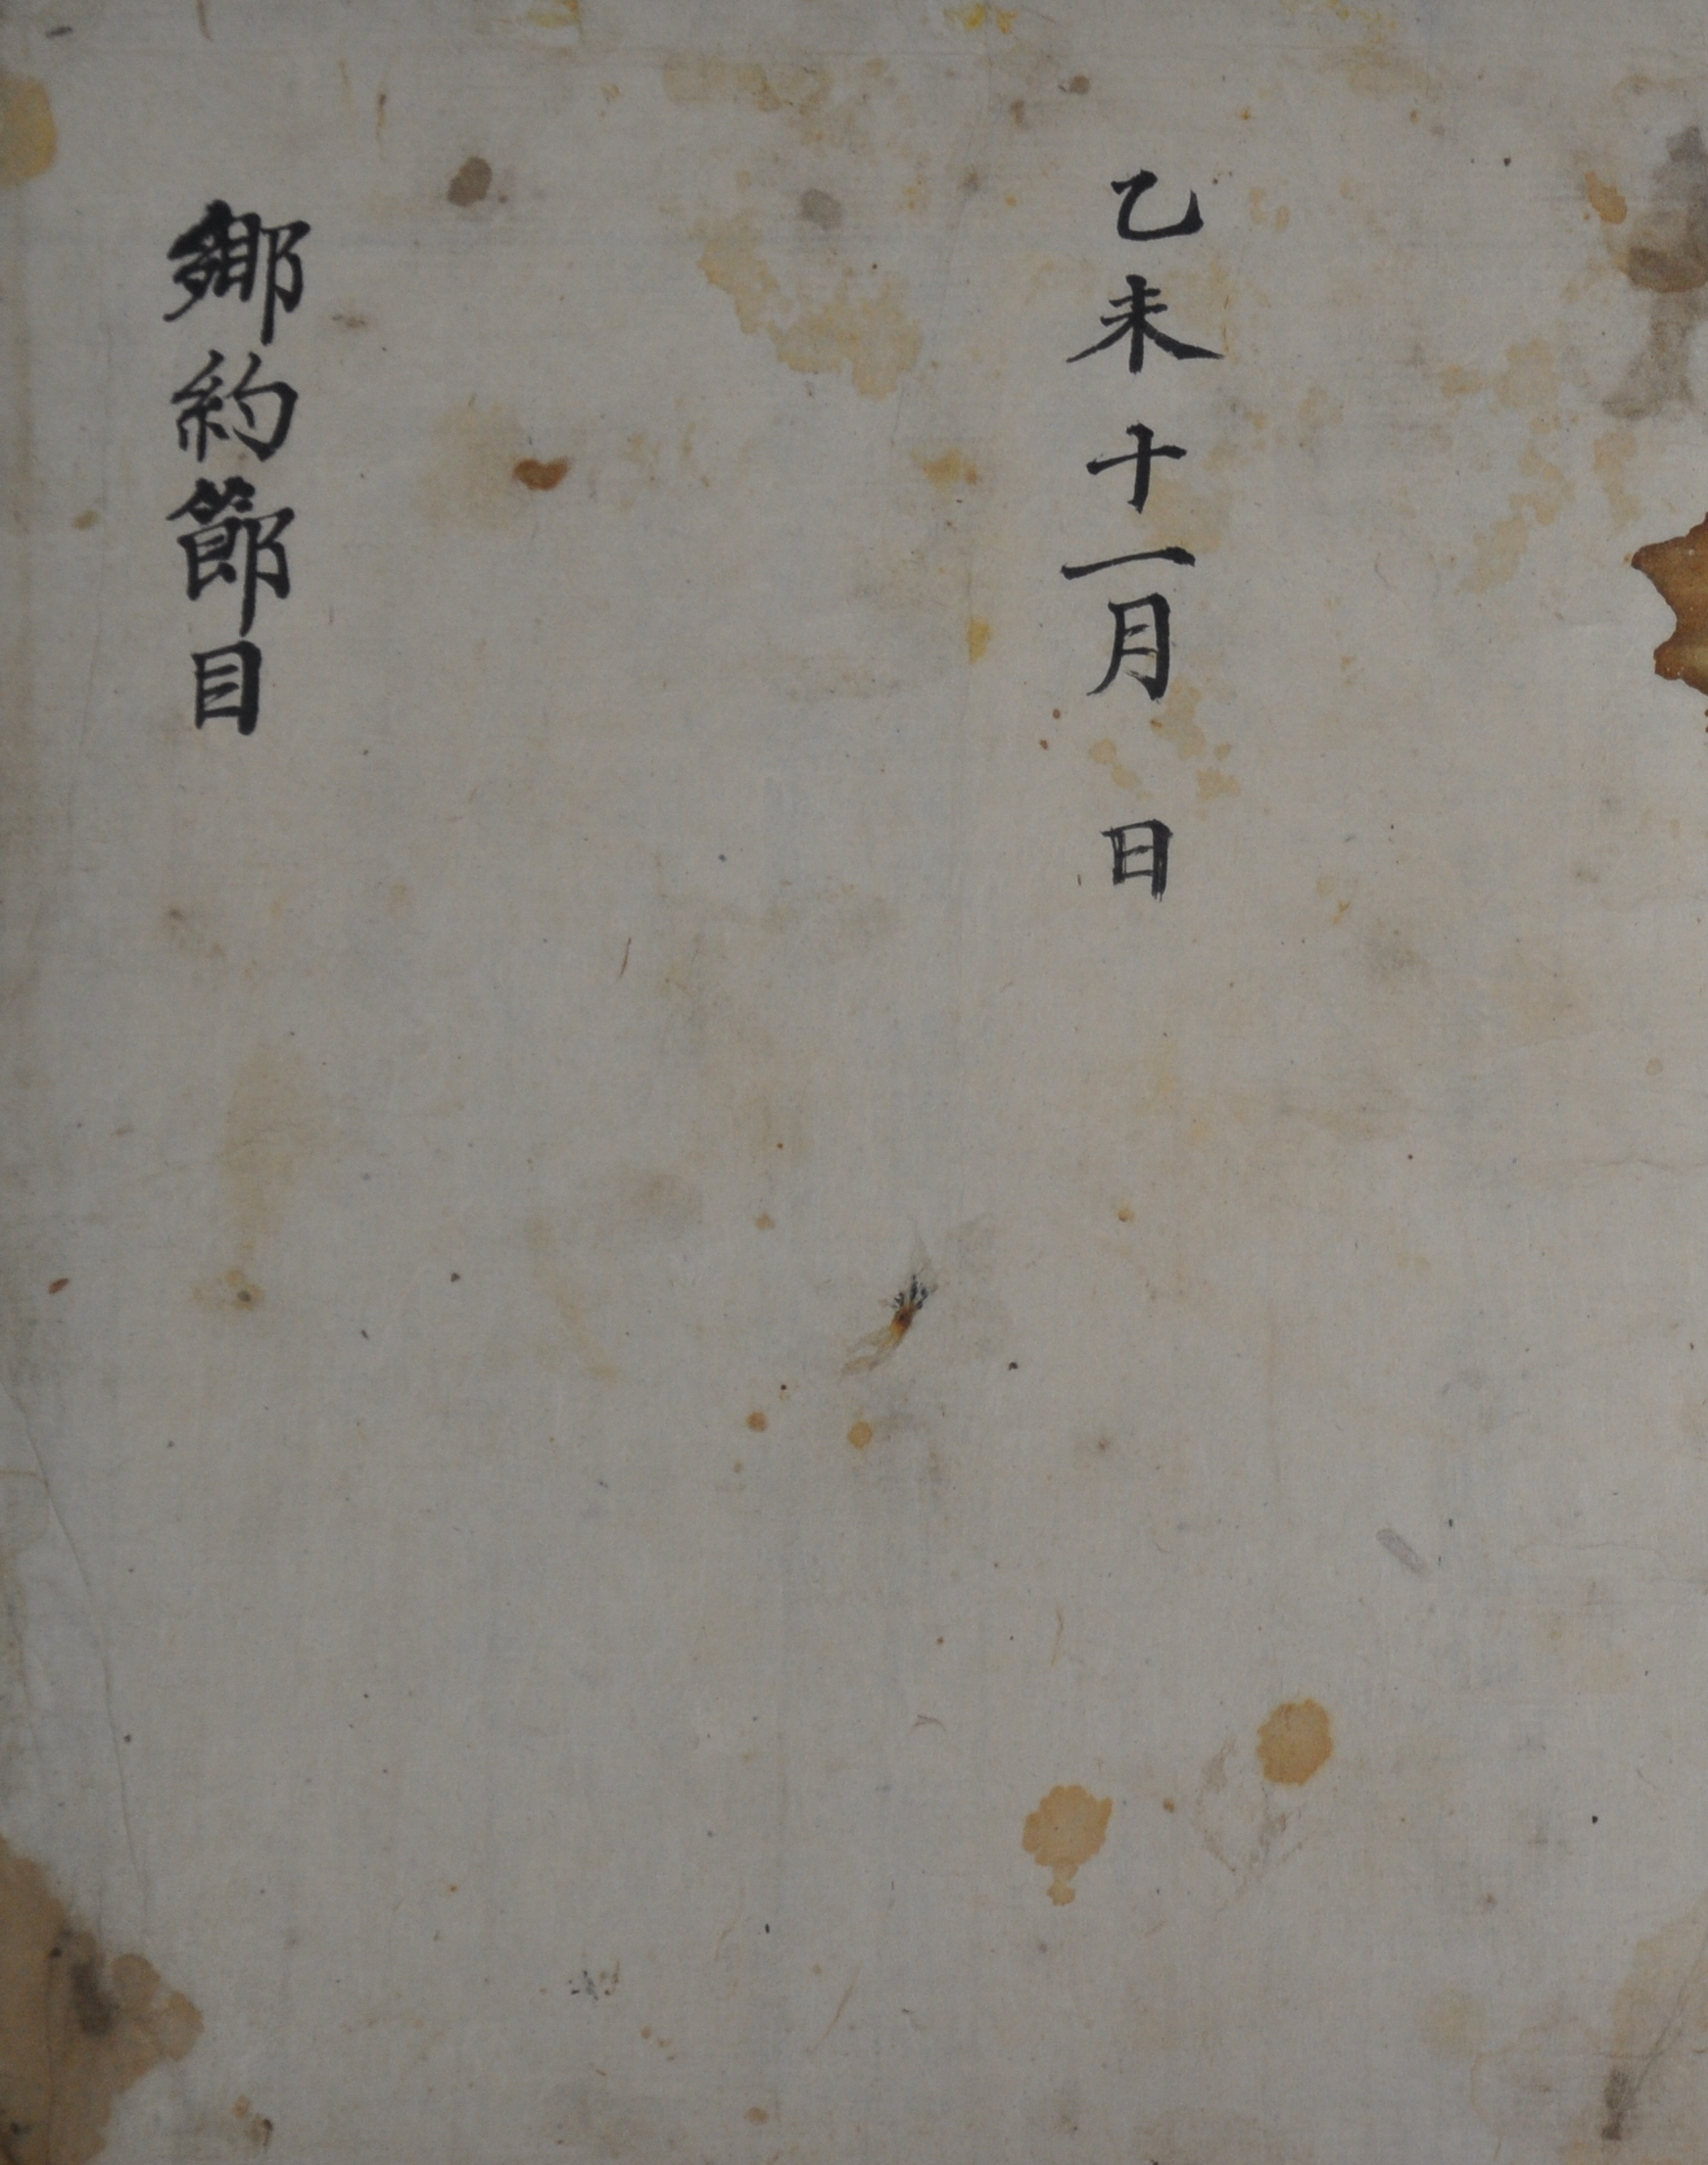 乙未十一月 日
鄉約節目